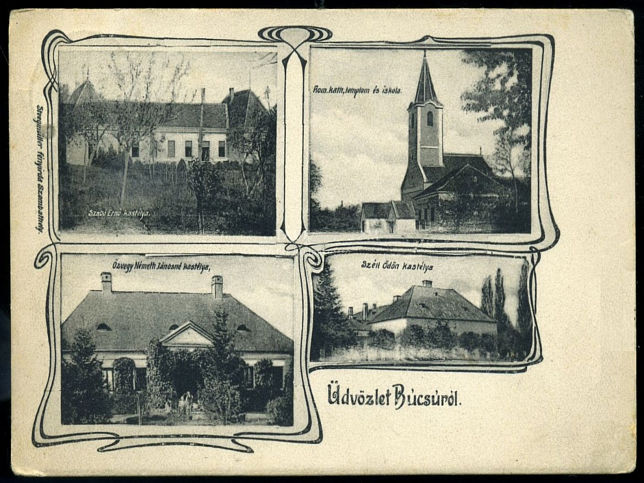 Szabó Ernő kastélya.
Rom. kath. templom és iskola.
Özvegy Németh Jánosné kastélya,
Széll Ödön kastélya
Üdvözlet Búcsúról.
fényirda Szombathely